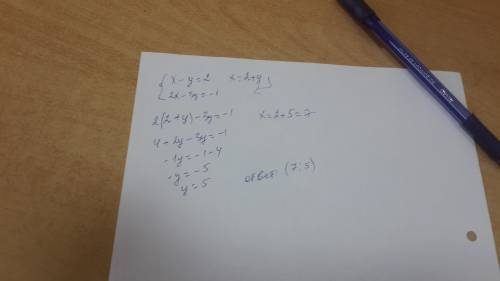 { x - y = 2    x = 2 + y
{ 2x - 3y = -1
2(2 + y) - 3y = -1    x = 2 + 5 = 7
4 + 2y - 3y = -1
-1y = -1 - 4
-y = -5
y = 5
ответ: (7; 5)